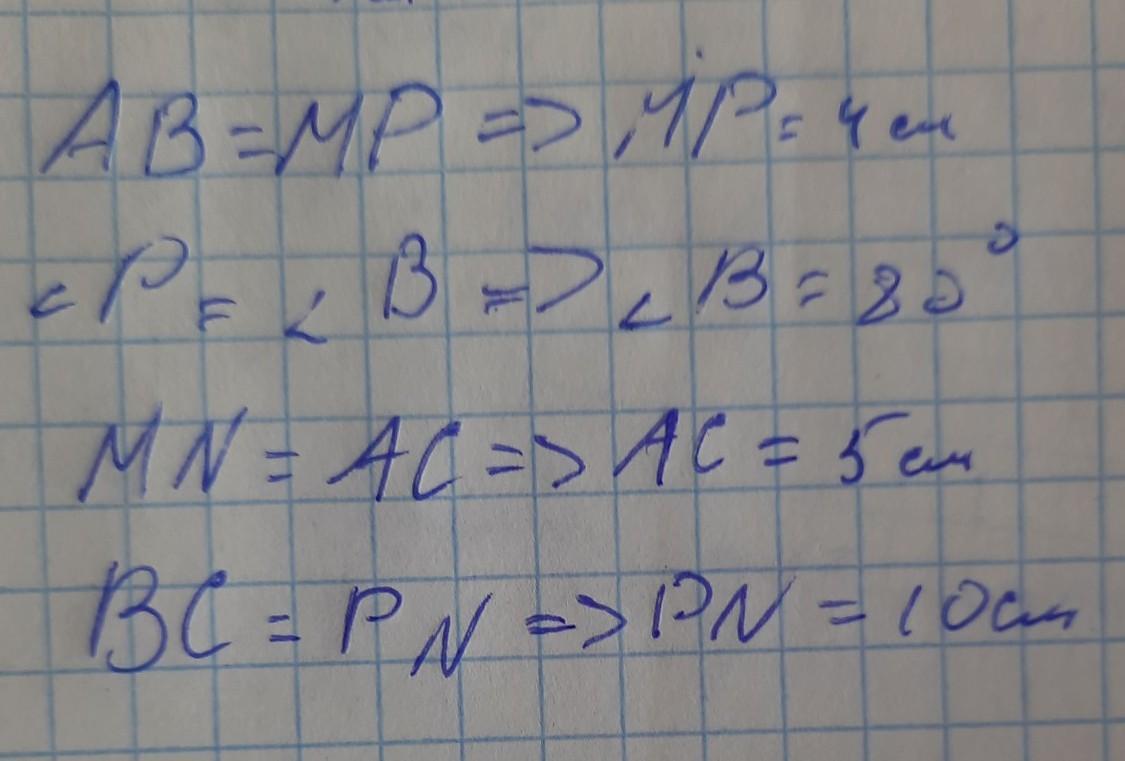 AB = MP => MP = 4 см
∠P = ∠B => ∠B = 80°
MN = AC => AC = 5 см
BC = PN => PN = 10 см